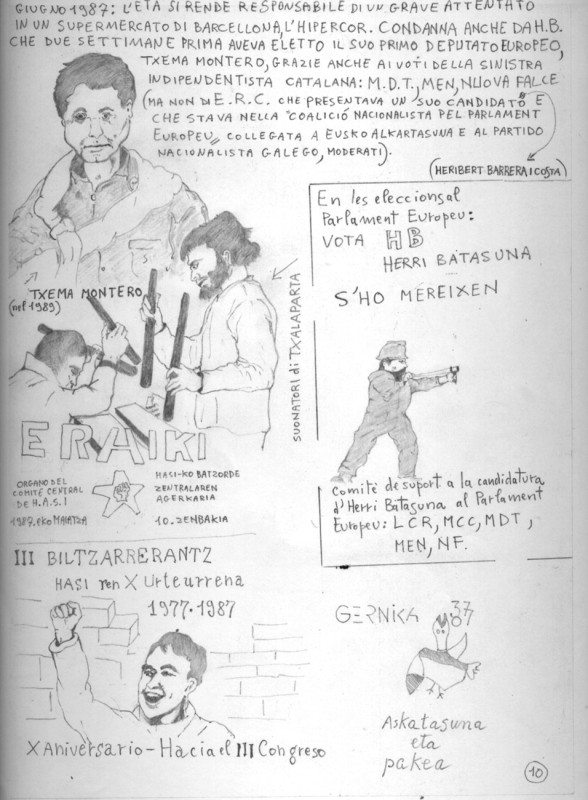 GIUGNO 1987: L'ETA SI RENDE RESPONSABILE DI UN GRAVE ATTENTATO
IN UN SUPERMERCATO DI BARCELLONA, L'HIPERCOR. CONDANNA ANCHE DA H.B.
CHE DUE SETTIMANE PRIMA AVEVA ELETTO IL SUO PRIMO DEPUTATO EUROPEO,
TXEMA MONTERO, GRAZIE ANCHE AI VOTI DELLA SINISTRA
INDIPENDENTISTA CATALANA: M.D.T., MEN, NUOVA FALCE
(MA NON DI E.R.C. CHE PRESENTAVA UN SUO CANDIDATO E
CHE STAVA NELLA "COALICIÓ NACIONALISTA PEL PARLAMENT
EUROPEU" COLLEGATA A EUSKO ALKARTASUNA E AL PARTIDO
NACIONALISTA GALEGO, MODERATI).
(HERIBERT BARRERA I COSTA)
TXEMA MONTERO
(nel 1989)
SUONATORI di TXALAPARTA
En les eleccions al
Parlament Europeu:
VOTA HB
HERRI BATASUNA
S'HO MEREIXEN
Comitè de suport a la candidatura
d'Herri Batasuna al Parlament
Europeu: LCR, MCC, MDT,
MEN, NF.
ERAIKI
ORGANO DEL
COMITÉ CENTRAL
DE H.A.S.I
1987.eko MAIATZA
HASI-KO BATZORDE
ZENTRALAREN
AGERKARIA
10. ZENBAKIA
III BILTZARRERANTZ
HASI ren X Urteurrena
1977-1987
X Aniversario - Hacia el III Congreso
GERNIKA 37
87
Askatasuna
eta
pakea
10